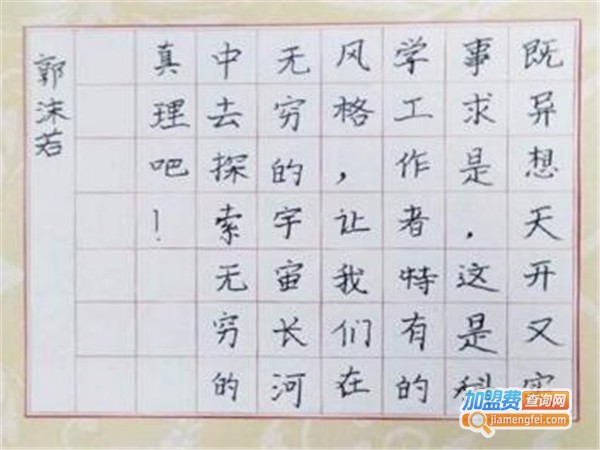 既异想天开又实
事求是，这是科
学工作者特有的
风格，让我们在
无穷的宇宙长河
中去探索无穷的
真理吧！
郭沫若
加盟费查询网
jiamengfei.com